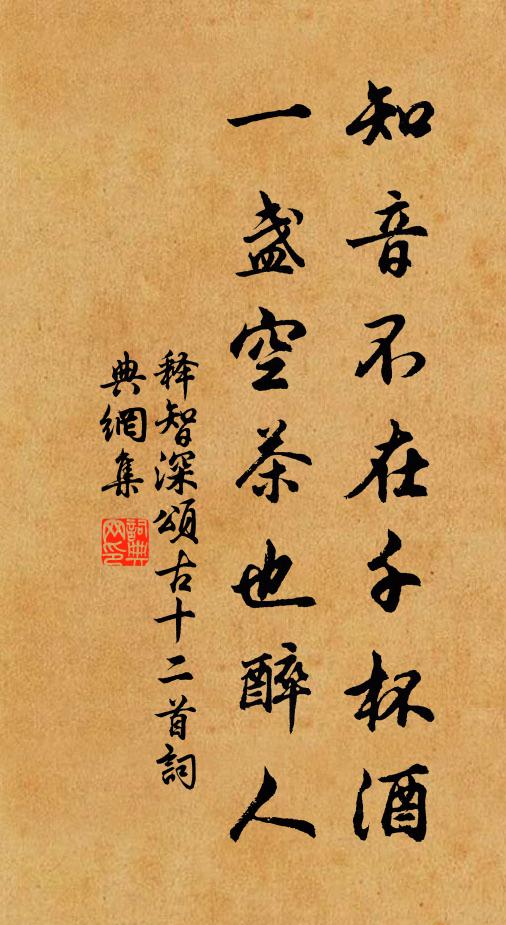 知音不在千杯酒
一盏空茶也醉人
释智深頌古十二首詞
典網集
詞典网印